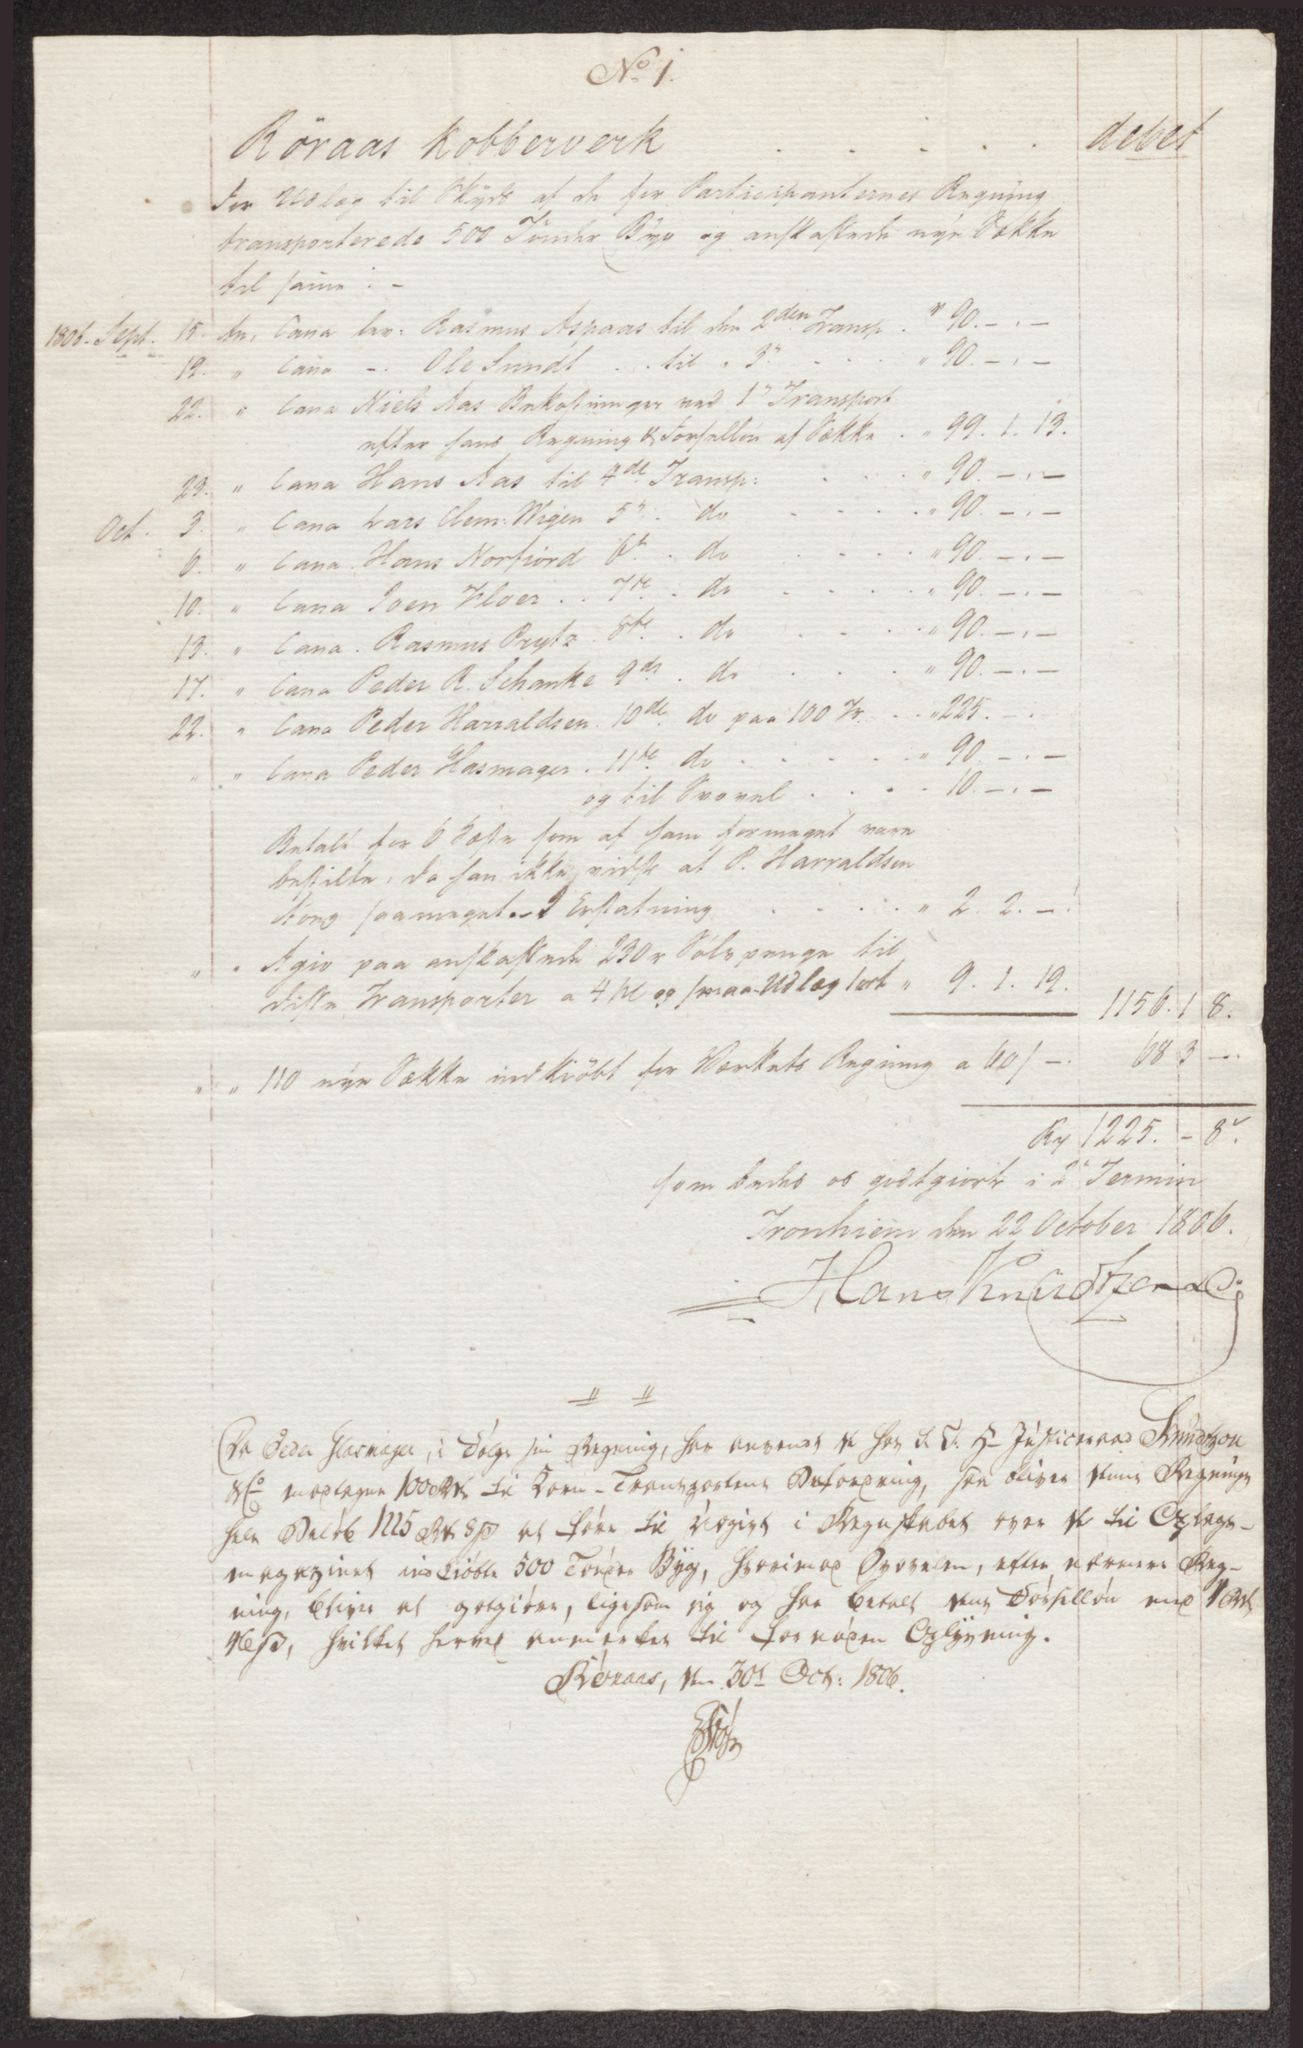 No 1.
Röraas Kobberverk . . . . . debet
For Udlæg til Skyds af de for Participanternes Regning
transporterede 500 Tønder Byg og anskaffede nye Sække
til samme : -
1806. Sept. 15. An, Cassa lev: Rasmus Aspaas til den 2den Transp. r 90. - . -
19. " Cassa - . Ole Sundt . . til " 3" . . . " 90. - . -
22. " Cassa Niels Aas Bekostninger ved 1" Transport
efter hans Regning & Forselløn af Sække . " 99. 1. 13.
23. " Cassa Hans Aas til 4de Transp: . . . " 90. - . -
Oct. 3. " Cassa Lars Clem: Wigen 5" . do . . . " 90. - . -
6. " Cassa Hans Norfiord 6te . do . . . " 90. - . -
10. " Cassa Joen Floer . . 7de . do . . . " 90. - . -
13. " Cassa . Rasmus Prytz . 8de . do . . . " 90. - . -
17. " Cassa Peder R. Schanke 9de . do . . . " 90. - . -
22. " Cassa Peder Harraldsen . 10de do paa 100 Tr. . . " 225. - .
" " Cassa Peder Hasmager . 11te do . . . . " 90. - . -
og til Svovel . . . . 10. - . -
Betalt for 6 Heste som af ham formeget vare
bestilte, da han ikke vidste at P. Harraldsen
tog saameget - I Erstatning . . . . " 2. 2. - .
" " Agio paa anskaffede 230 r Sølvpenge til
diste Transporter a 4 pC og smaa Udlæg " 9. 1. 19. 1156. 1 8.
" " 110 nye Sække indkiöbt for Værkets Regning a 60 s - . 68 3 - .
Rg 1225. - 8.
som bedes os godtgiort i 2" Termin
Tronhiem den 22 October 1806.
Hans Knudtzon & Co.
" "
Da Peder Hasmager, i Følge sin Regning, har anvendt de hos S. T. Hr Justiceraad Knudtzon
& Co modtagne 100 Rd til Korn-Transportens Befordring, saa bliver denne Regnings
hele Beløb 1225 Rd 8 s at føre til Udgivt i Regnskabet over de til Oplags-
magazinet indkiöbte 500 Tønder Byg, hvorimod Svovelen, efter nærmere Reg-
ning, bliver at godtgiøre, ligesom jeg og har betalt den Forselløn med 1 Rd
16 s, hvilket herved anmerkes til fornøden Oplysning.
Röraas, den 30t Oct: 1806.